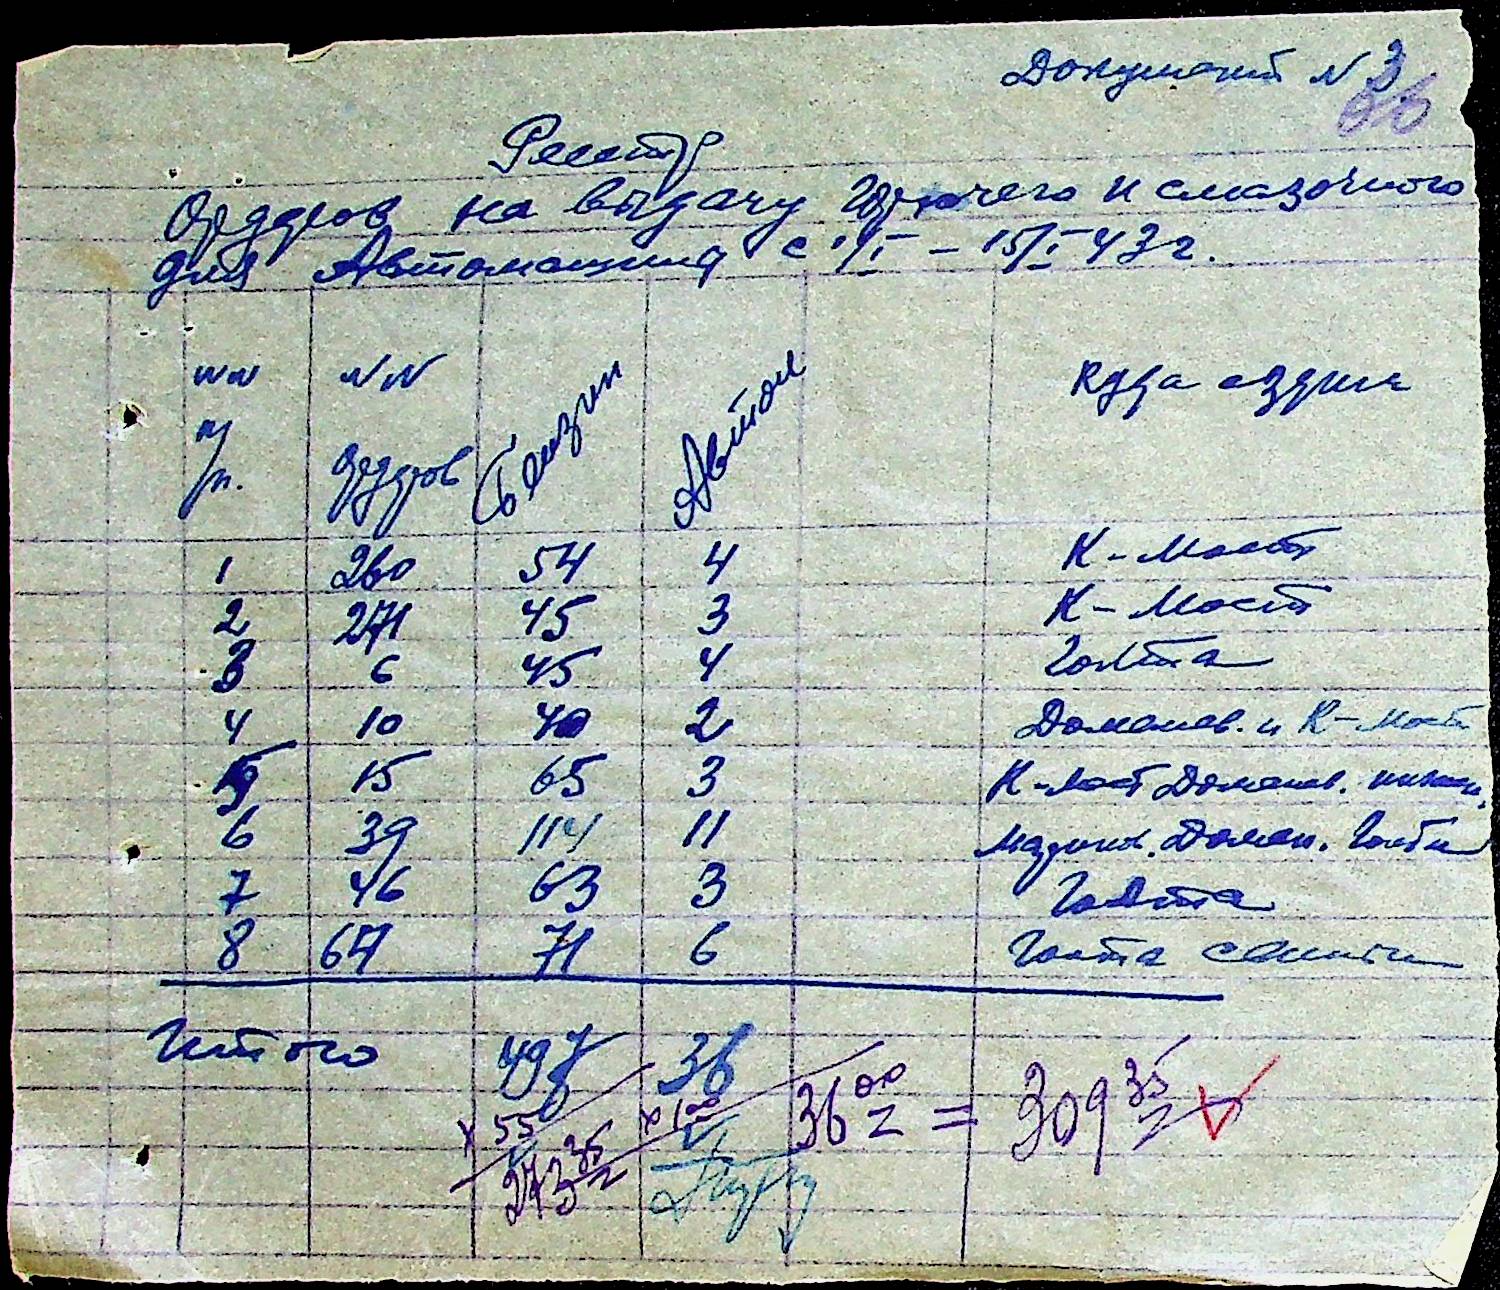 Документ N 3
86
Реестр
Ордеров на выдачу Горючего и смазочного
для Автомашина с 1/I - 15/I 43 г.
NN п/п. NN ордеров Бензин Автол Куда ездил
1 260 54 4 К-Мост
2 271 45 3 К-Мост
3 6 45 4 Голта
4 10 40 2 Доманев. и К-Мост
5 15 65 3 К-Мост Доманев.
6 39 114 11 Доман. Голта
7 46 63 3 Голта
8 64 71 6 Голта
Итого 497 36
x 55 x 1 00 36 00 = 309 35
273 35